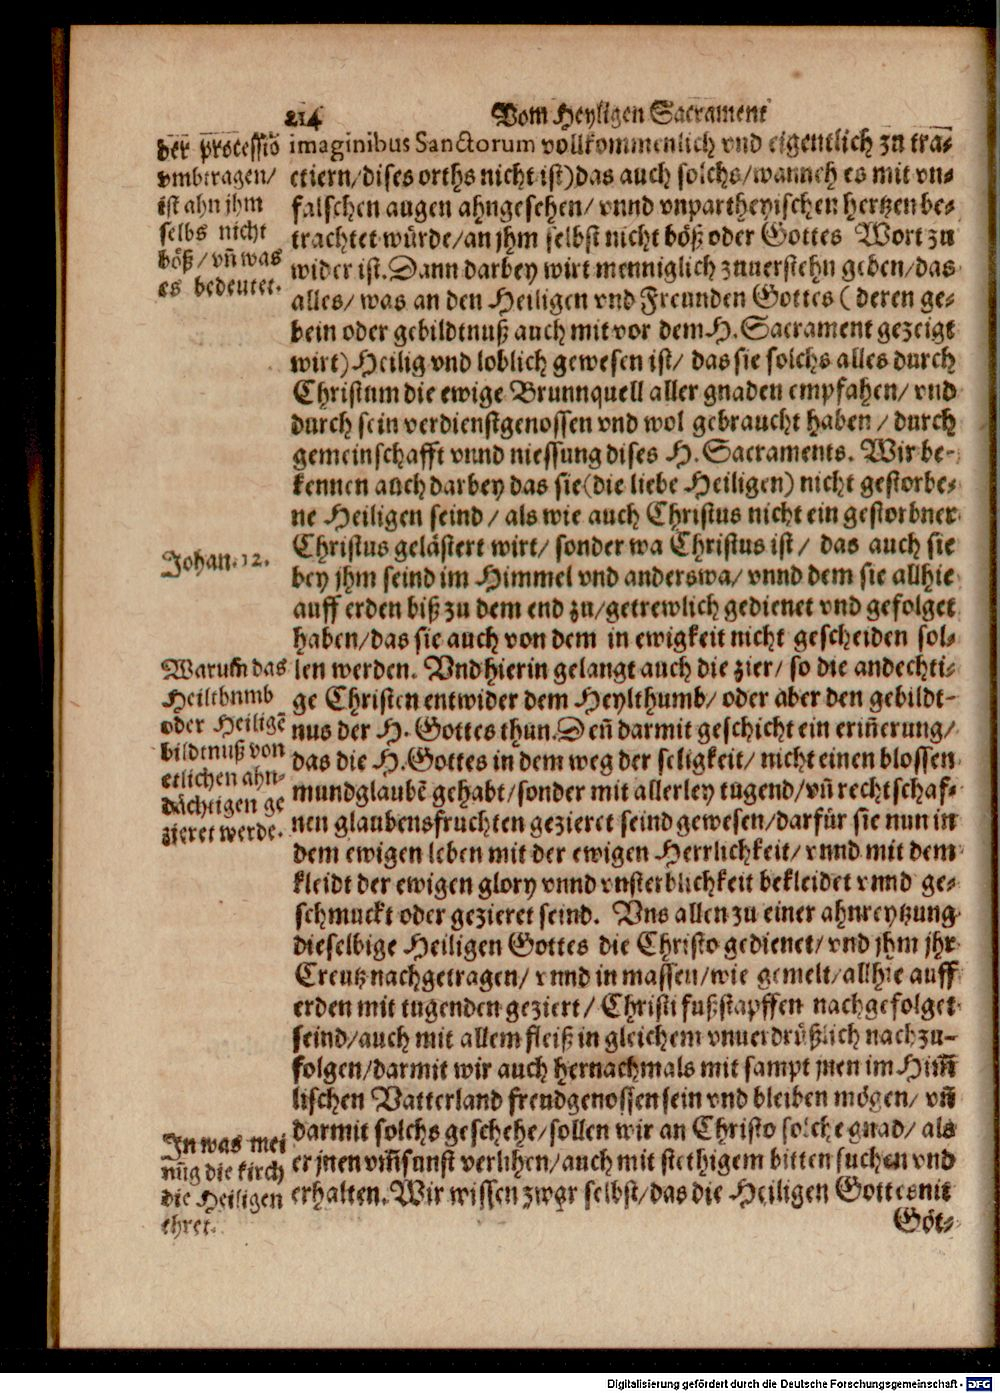 214 Vom Heyligen Sacrament
der processiō
vmbtragen/
ist ahn jhm
selbs nicht
böß/ vn̄ was
es bedeutet.
imaginibus Sanctorum vollkommenlich vnd eigentlich zu tra-
ctiern/dises orths nicht ist)das auch solchs/wanneh es mit vn-
falschen augen ahngesehen/ vnnd vnpartheyischen hertzen be-
trachtet würde/an jhm selbst nicht böß oder Gottes Wort zu
wider ist. Dann darbey wirt menniglich zuuerstehn geben/das
alles/ was an den Heiligen vnd Freunden Gottes ( deren ge-
bein oder gebildtnuß auch mit vor dem H. Sacrament gezeigt
wirt) Heilig vnd loblich gewesen ist/ das sie solchs alles durch
Christum die ewige Brunnquell aller gnaden empfahen/ vnd
durch sein verdienst genossen vnd wol gebraucht haben / durch
gemeinschafft vnnd niessung dises H. Sacraments. Wir be-
kennen auch darbey das sie(die liebe Heiligen) nicht gestorbe-
ne Heiligen seind / als wie auch Christus nicht ein gestorbner
Johan. 12.
Christus gelästert wirt/ sonder wa Christus ist / das auch sie
bey jhm seind im Himmel vnd anderswa/ vnnd dem sie allhie
auff erden biß zu dem end zu/getrewlich gedienet vnd gefolget
haben/das sie auch von dem in ewigkeit nicht gescheiden sol-
Warum̄ das
Heilthumb
oder Heiligē
bildtnuß von
etlichen ahn-
dächtigen ge
zieret werde.
len werden. Vnd hierin gelangt auch die zier/ so die andechti-
ge Christen entwider dem Heylthumb/ oder aber den gebildt-
nus der H. Gottes thun. Den̄ darmit geschicht ein erin̄erung/
das die H. Gottes in dem weg der seligkeit/ nicht einen blossen
mundglaubē gehabt/sonder mit allerley tugend/vn̄ rechtschaf-
nen glaubensfruchten gezieret seind gewesen/darfür sie nun in
dem ewigen leben mit der ewigen Herrlichkeit/ vnnd mit dem
kleidt der ewigen glory vnnd vnsterblichkeit bekleidet vnnd ge-
schmuckt oder gezieret seind. Vns allen zu einer ahnreytzung
dieselbige Heiligen Gottes die Christo gedienet/ vnd jhm jhr
Creutz nachgetragen/ vnnd in massen/wie gemelt/allhie auff
erden mit tugenden geziert/ Christi fußstapffen nachgefolget
seind/auch mit allem fleiß in gleichem vnuerdrüßlich nachzu-
folgen/darmit wir auch hernachmals mit sampt jnen im Him̄
lischen Vatterland frendgenossen sein vnd bleiben mögen/ vn̄
In was mei
nūg die kirch
die Heiligen
ehret.
darmit solchs geschehe/sollen wir an Christo solche gnad/ als
er jnen vm̄sunst verlihen/auch mit stethigem bitten suchen vnd
erhalten. Wir wissen zwar selbst/das die Heiligen Gottes nit
Göt-
Digitalisierung gefördert durch die Deutsche Forschungsgemeinschaft - DFG